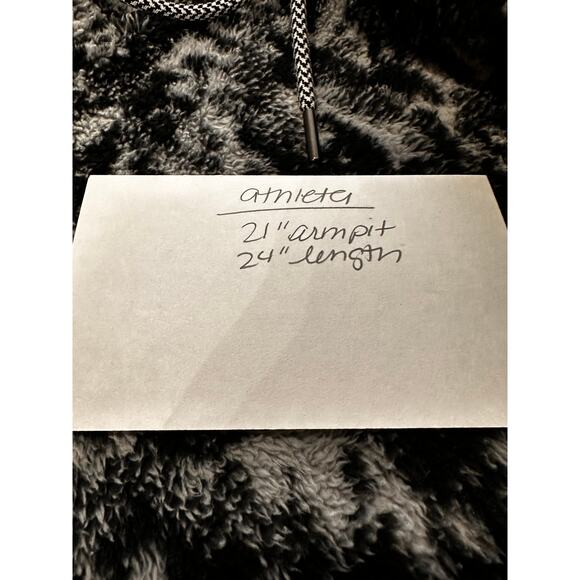 athleta
21" armpit
24" length